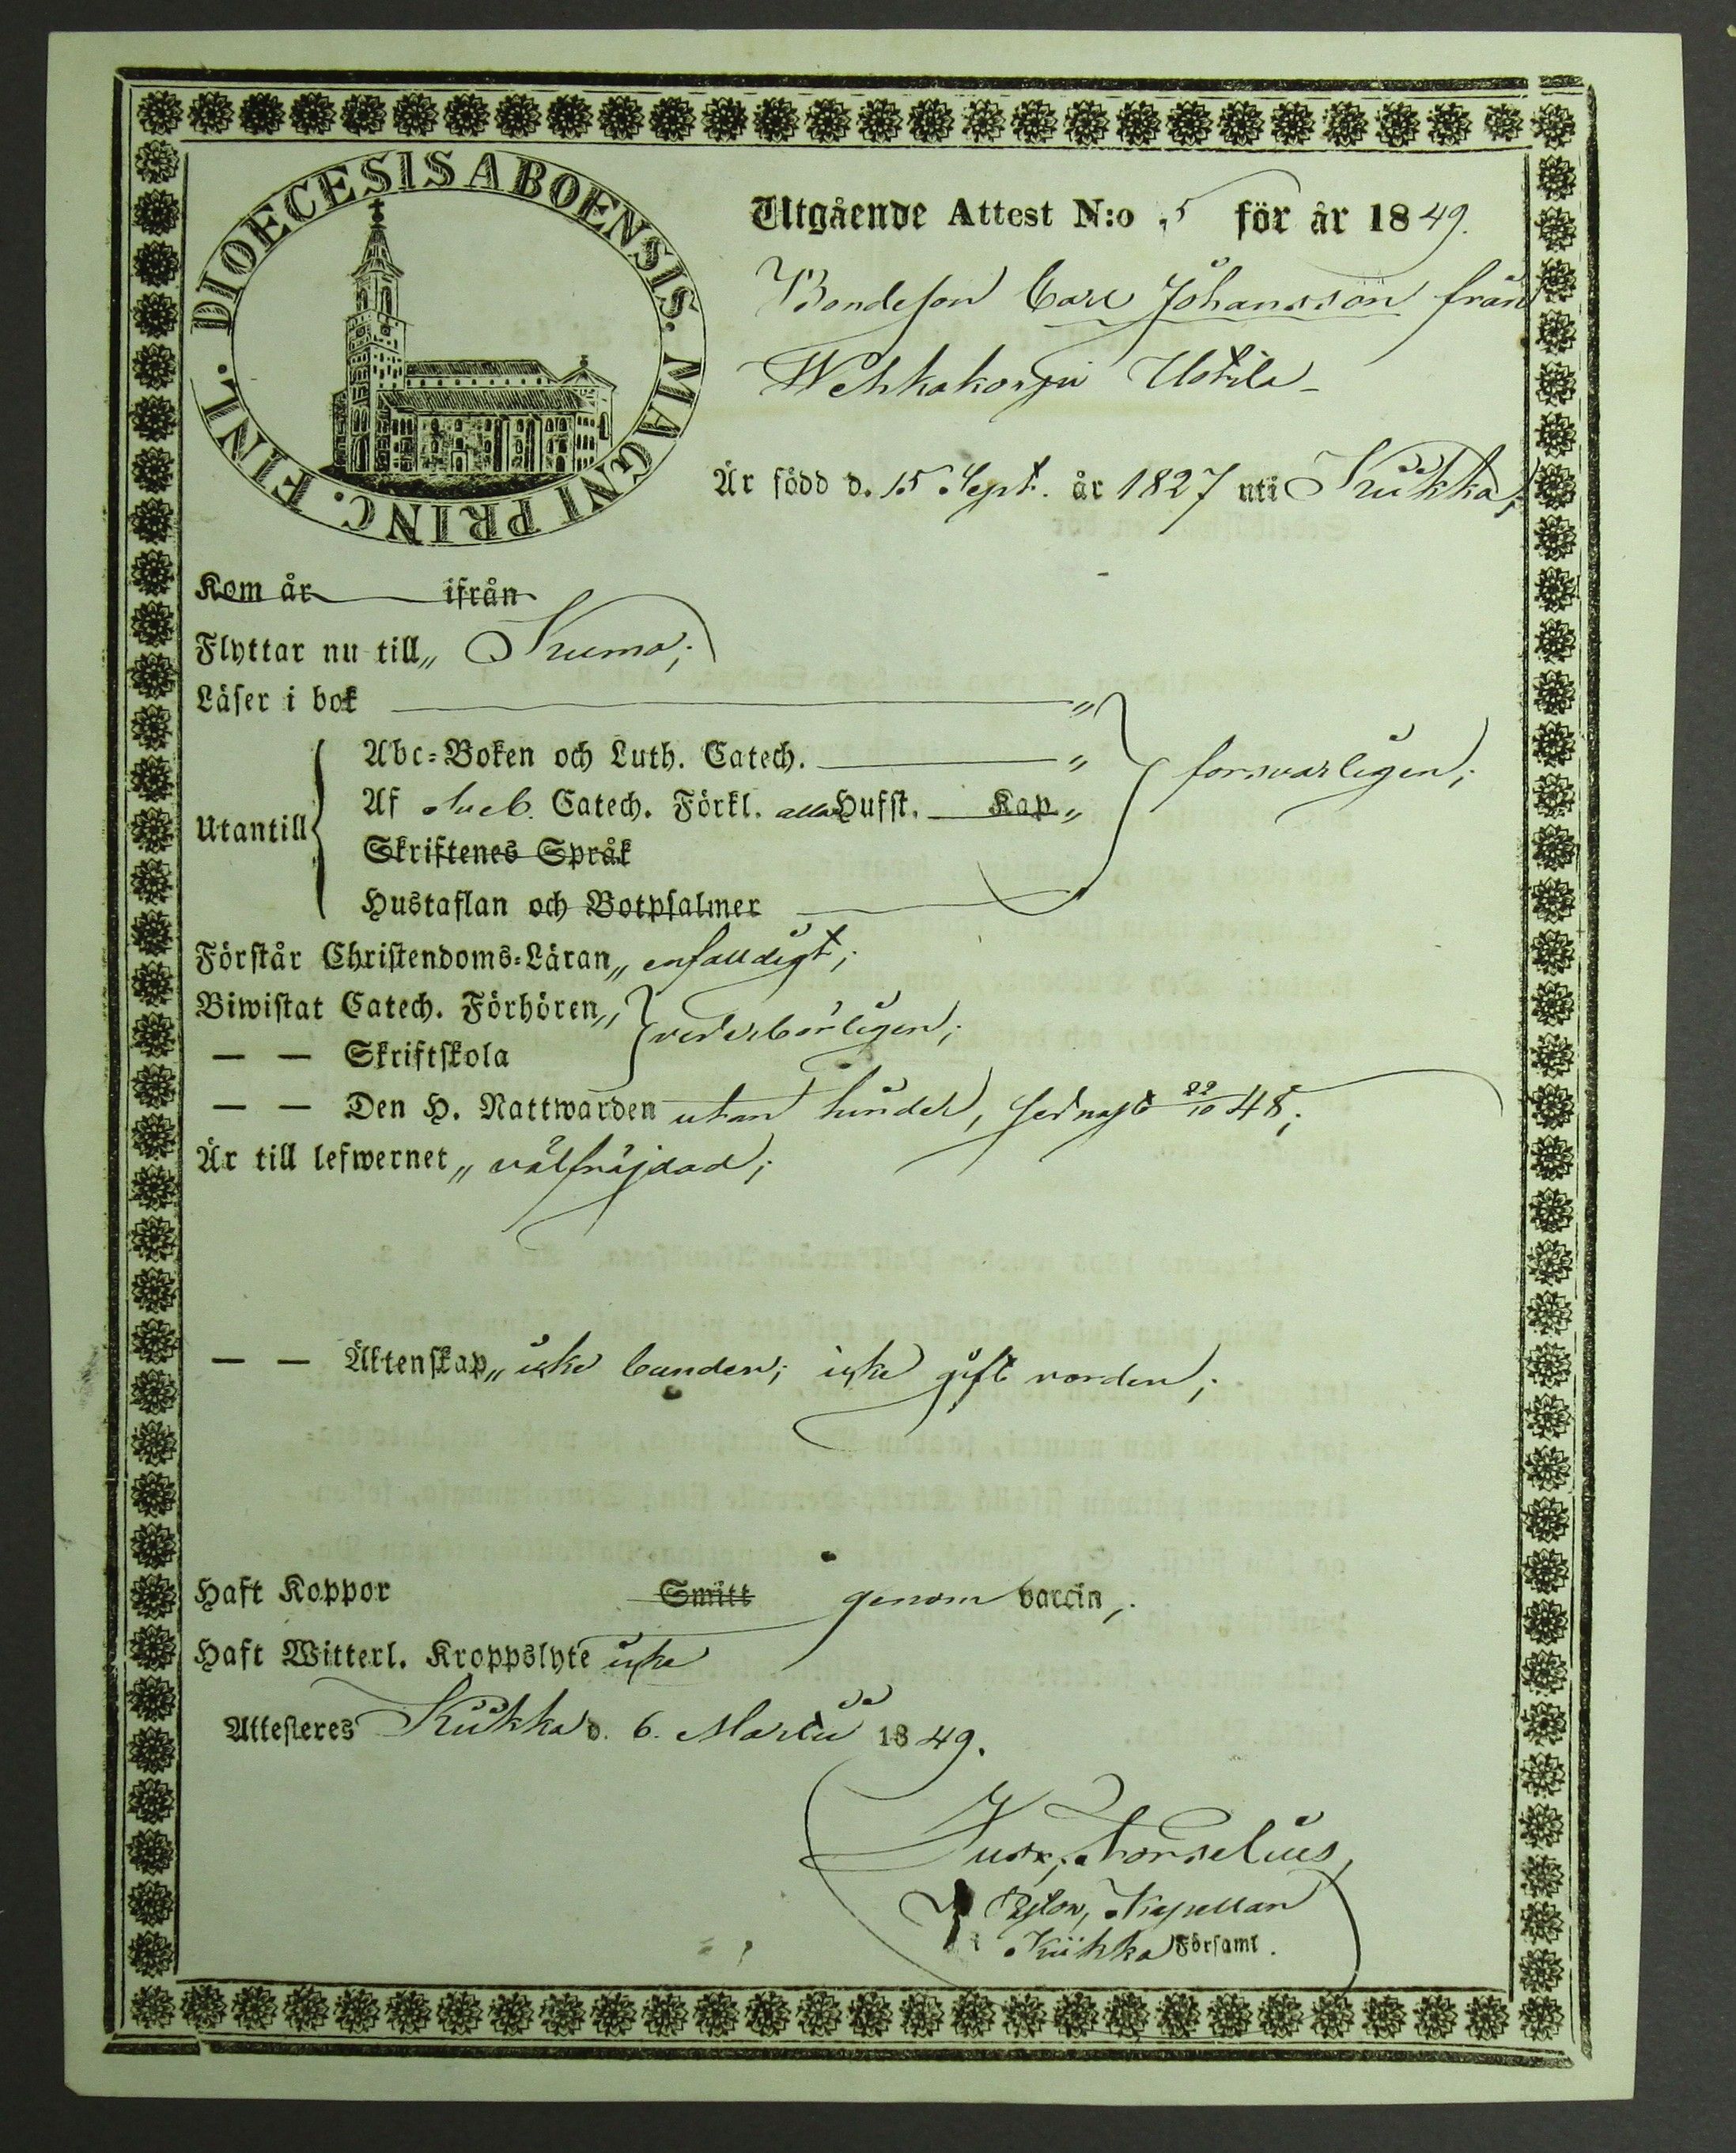 DIOECESIS ABOENSIS. MAGNI PRINC. FINL.
Utgående Attest N:o 5 för år 1849.
Bondeson Carl Johansson från
Wehkakorpi Uotila
Är född d. 15 Sept. år 1827 uti Kiikka,
Kom år ifrån
Flyttar nu till „ Kumo;
Läser i bok „
Abc-Boken och Luth. Catech. „
Af Sveb. Catech. Förkl. alla Hufst. Kap „
Utantill
försvarligen;
Skriftenes Språk
Hustaflan och Botpsalmer
Förstår Christendoms-Läran „ enfalldigt;
Biwistat Catech. Förhören „
vederbörligen;
— — Skriftskola
— — Den H. Nattwarden utan hinder, sednast 22/10 48;
Är till lefwernet „ välfräjdad;
— — Äktenskap „ icke bunden; icke gift vorden;
Haft Koppor Smitt genom vaccin,
Haft Witterl. Kroppslyte icke
Attesteres Kiikka d. 6. Martii 1849.
Kapellan
i Kiikka Församl.